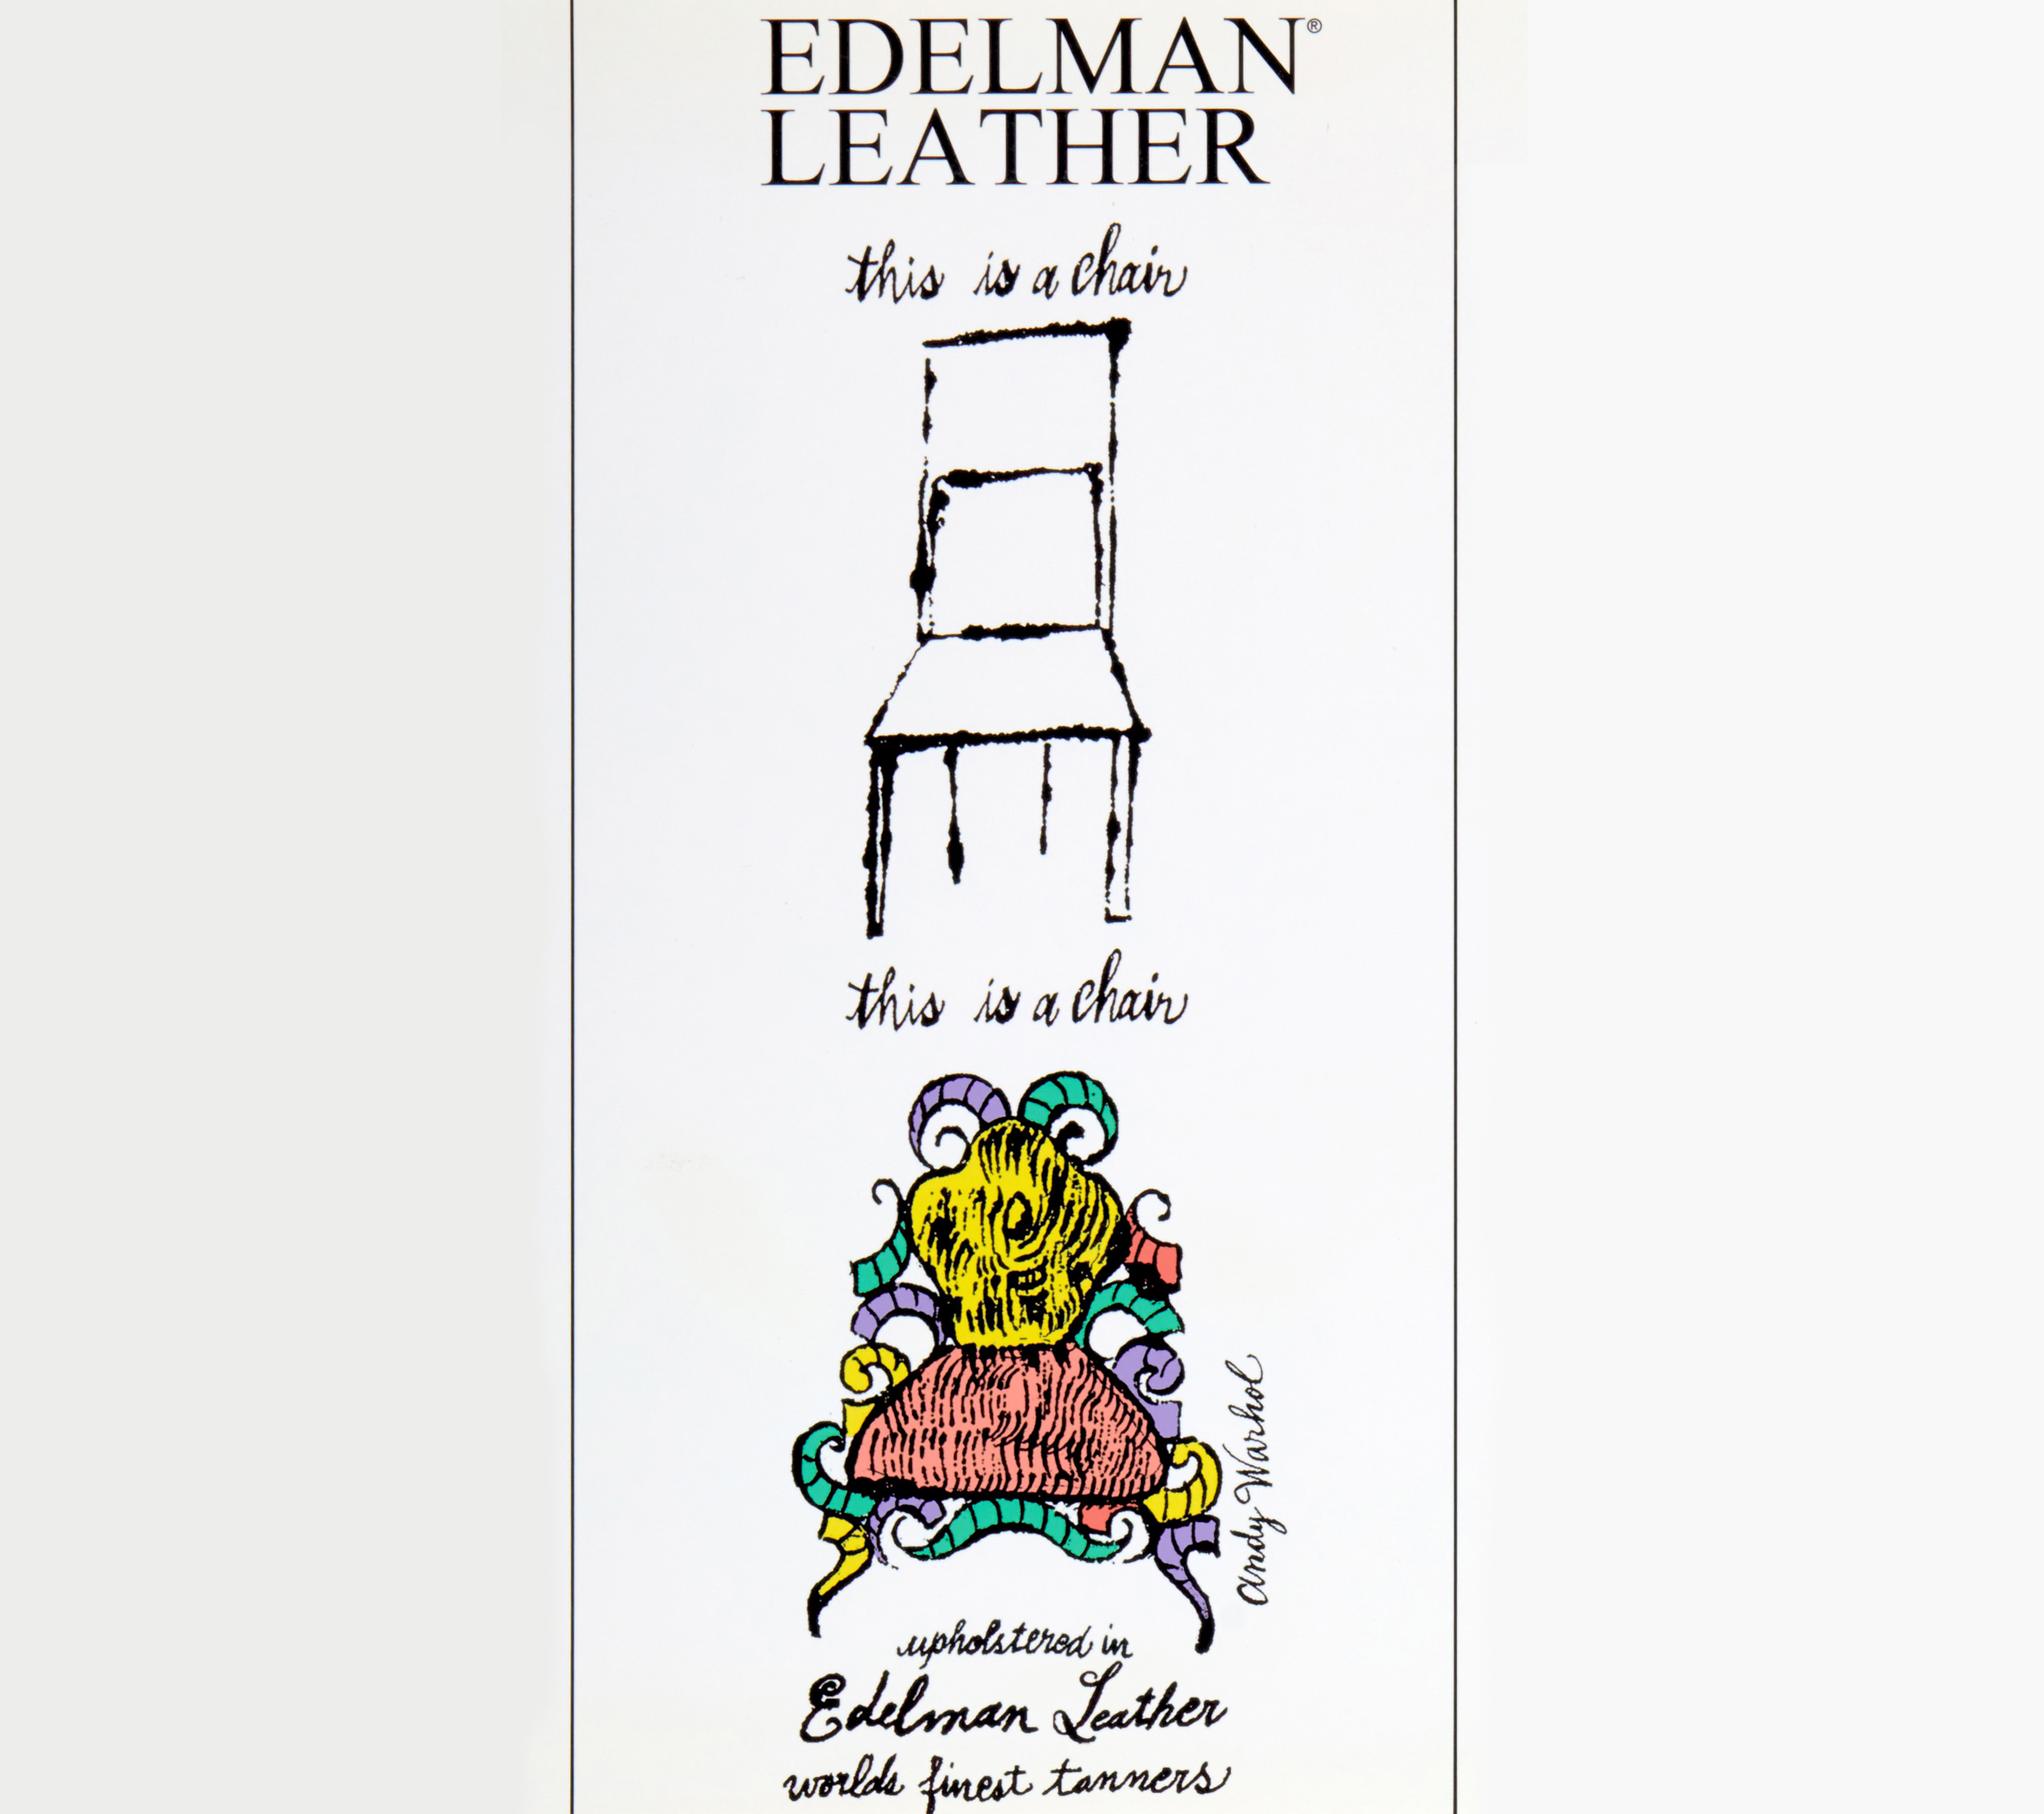 EDELMAN®
LEATHER
this is a chair
this is a chair
andy Warhol
upholstered in
Edelman Leather
worlds finest tanners